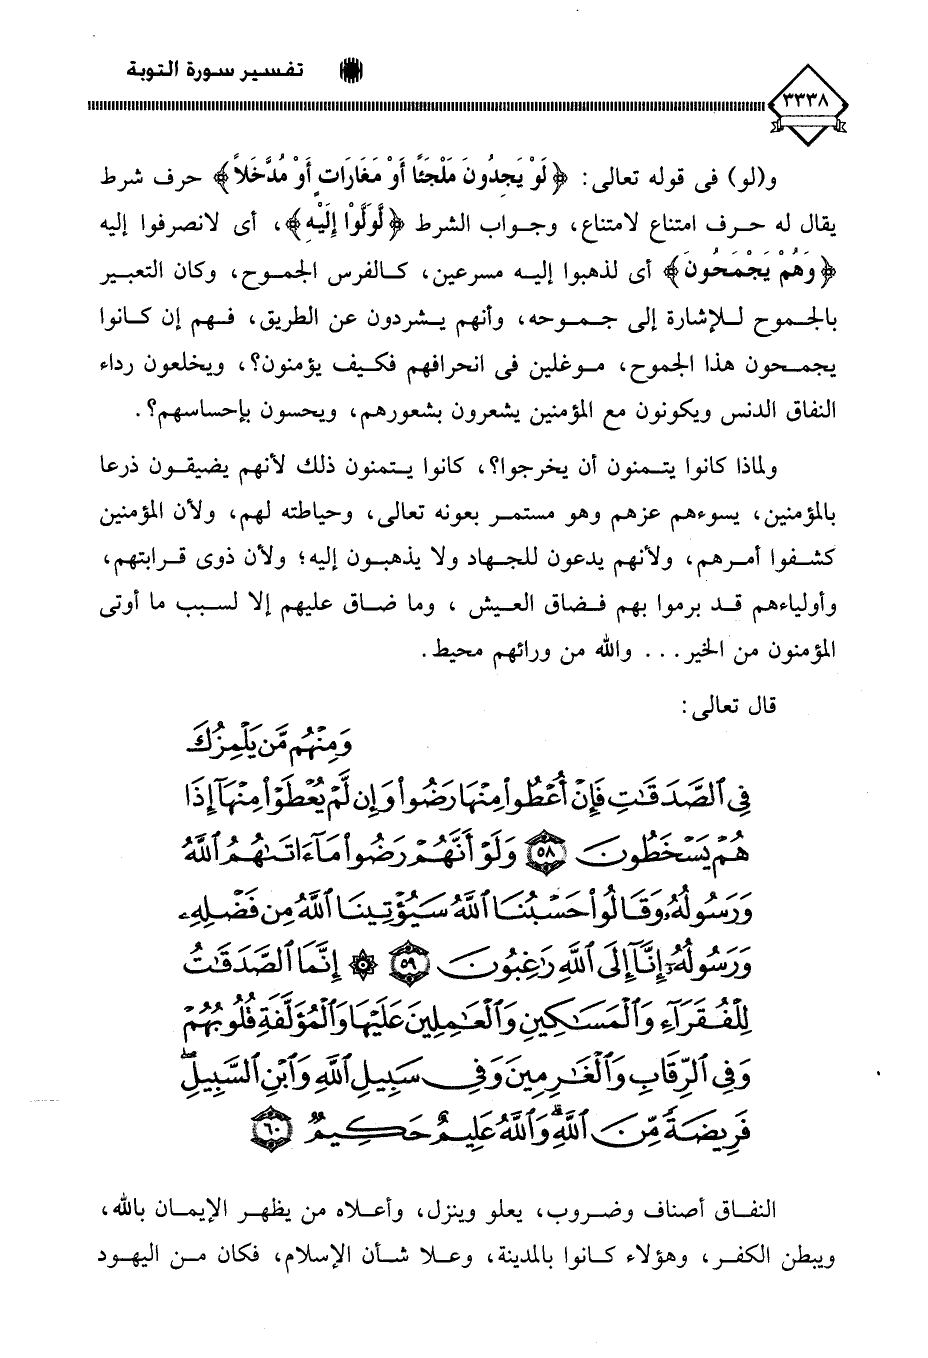 تفسير سورة التوبة
٣٣٣٨
و(لو) فى قوله تعالى: ﴿لَوْ يَجِدُونَ مَلْجَئًا أَوْ مَغَارَاتٍ أَوْ مُدَّخَلاً﴾ حرف شرط
يقال له حرف امتناع لامتناع، وجواب الشرط ﴿لَّوَلَّوْا إِلَيْهِ﴾، أى لانصرفوا إليه
﴿وَهُمْ يَجْمَحُونَ﴾ أى لذهبوا إليه مسرعين، كالفرس الجموح، وكان التعبير
بالجموح للإشارة إلى جموحه، وأنهم يشردون عن الطريق، فهم إن كانوا
يجمحون هذا الجموح، موغلين فى انحرافهم فكيف يؤمنون؟، ويخلعون رداء
النفاق الدنس ويكونون مع المؤمنين يشعرون بشعورهم، ويحسون بإحساسهم؟.
ولماذا كانوا يتمنون أن يخرجوا؟، كانوا يتمنون ذلك لأنهم يضيقون ذرعا
بالمؤمنين، يسوءهم عزهم وهو مستمر بعونه تعالى، وحياطته لهم، ولأن المؤمنين
كشفوا أمرهم، ولأنهم يدعون للجهاد ولا يذهبون إليه؛ ولأن ذوى قرابتهم،
وأولياءهم قد برموا بهم فضاق العيش ، وما ضاق عليهم إلا لسبب ما أوتى
المؤمنون من الخير... والله من ورائهم محيط.
قال تعالى:
وَمِنْهُم مَّن يَلْمِزُكَ
فِي ٱلصَّدَقَٰتِ فَإِنْ أُعْطُوا۟ مِنْهَا رَضُوا۟ وَإِن لَّمْ يُعْطَوْا۟ مِنْهَآ إِذَا
هُمْ يَسْخَطُونَ ٥٨ وَلَوْ أَنَّهُمْ رَضُوا۟ مَآ ءَاتَىٰهُمُ ٱللَّهُ
وَرَسُولُهُۥ وَقَالُوا۟ حَسْبُنَا ٱللَّهُ سَيُؤْتِينَا ٱللَّهُ مِن فَضْلِهِۦ
وَرَسُولُهُۥٓ إِنَّآ إِلَى ٱللَّهِ رَٰغِبُونَ ٥٩ ۞ إِنَّمَا ٱلصَّدَقَٰتُ
لِلْفُقَرَآءِ وَٱلْمَسَٰكِينِ وَٱلْعَٰمِلِينَ عَلَيْهَا وَٱلْمُؤَلَّفَةِ قُلُوبُهُمْ
وَفِي ٱلرِّقَابِ وَٱلْغَٰرِمِينَ وَفِي سَبِيلِ ٱللَّهِ وَٱبْنِ ٱلسَّبِيلِۖ
فَرِيضَةً مِّنَ ٱللَّهِۗ وَٱللَّهُ عَلِيمٌ حَكِيمٌ ٦٠
النفاق أصناف وضروب، يعلو وينزل، وأعلاه من يظهر الإيمان بالله،
ويبطن الكفر، وهؤلاء كانوا بالمدينة، وعلا شأن الإسلام، فكان من اليهود